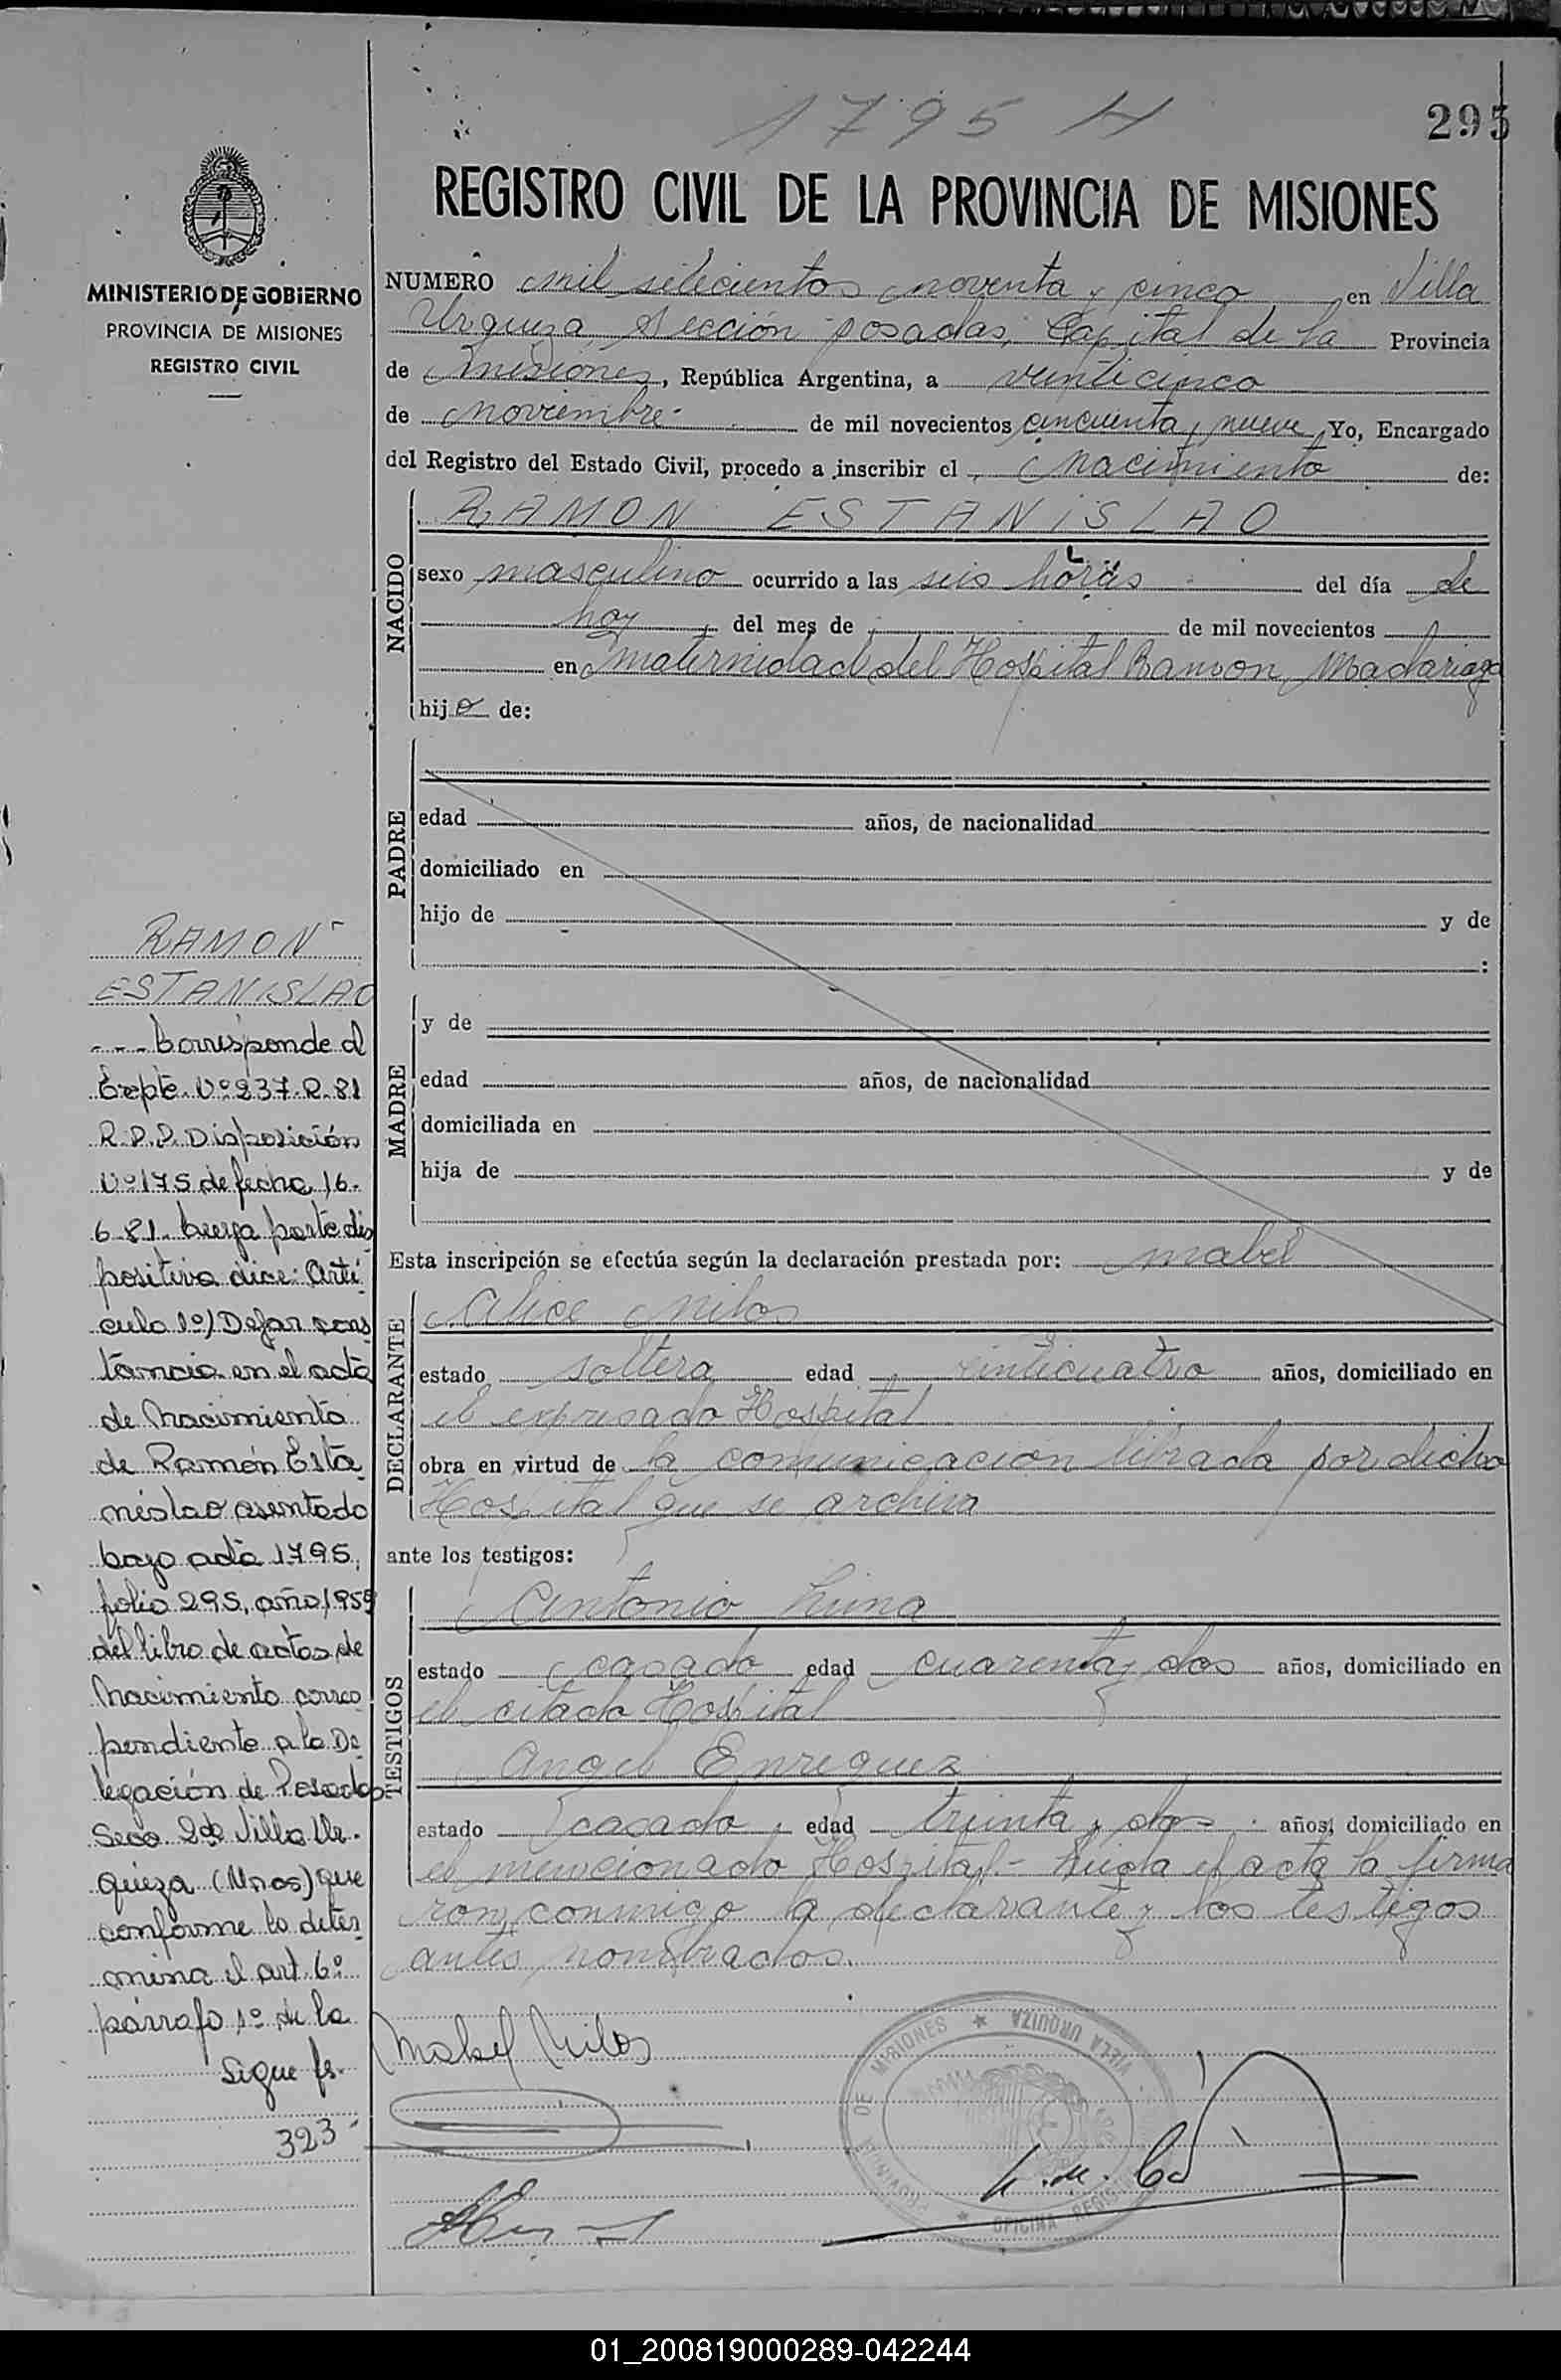 1795 H
295
REGISTRO CIVIL DE LA PROVINCIA DE MISIONES
MINISTERIO DE GOBIERNO
PROVINCIA DE MISIONES
REGISTRO CIVIL
NUMERO mil setecientos noventa y cinco en Villa
Urquiza, Sección posadas, Capital de la Provincia
de Misiones, República Argentina, a veinticinco
de noviembre de mil novecientos cincuenta y nueve Yo, Encargado
del Registro del Estado Civil, procedo a inscribir el Nacimiento de:
RAMON ESTANISLAO
NACIDO
sexo masculino ocurrido a las seis horas del día de
hoy del mes de de mil novecientos
en Maternidad del Hospital Ramon Madariaga
hijo de:
PADRE
edad años, de nacionalidad
domiciliado en
hijo de y de
:
MADRE
y de
edad años, de nacionalidad
domiciliada en
hija de y de
Esta inscripción se efectúa según la declaración prestada por: Mabel
DECLARANTE
Alice Milos
estado soltera edad veinticuatro años, domiciliado en
el expresado Hospital
obra en virtud de la comunicación librada por dicho
Hospital que se archiva
ante los testigos:
TESTIGOS
Antonio Luna
estado casado edad cuarenta y dos años, domiciliado en
el citado Hospital
Angel Enrequez
estado casado, edad treinta y dos años, domiciliado en
el mencionado Hospital.- Leida el acta la firma
ron conmigo la declarante y los testigos
antes nombrados.
Mabel Milos
RAMON
ESTANISLAO
--- Corresponde al
Expte. Nº 237-R-81
R.P.P. Disposición
Nº 175 de fecha 16-
6-81. cuya parte dis
positiva dice: Artí
culo 1º) Dejar cons
tancia en el acta
de Nacimiento
de Ramón Esta
nislao asentado
bajo acta 1795,
folio 295, año 1959
del libro de actas de
Nacimiento corres
pendiente a la De
legación de Posadas
Secc. 2da Villa Ur-
quiza (Mnes) que
conforme lo deter
mina el art. 6º
párrafo 1º de la
Sigue fs.
323-
DE MISIONES ★ VILLA URQUIZA
OFICINA
01_200819000289-042244